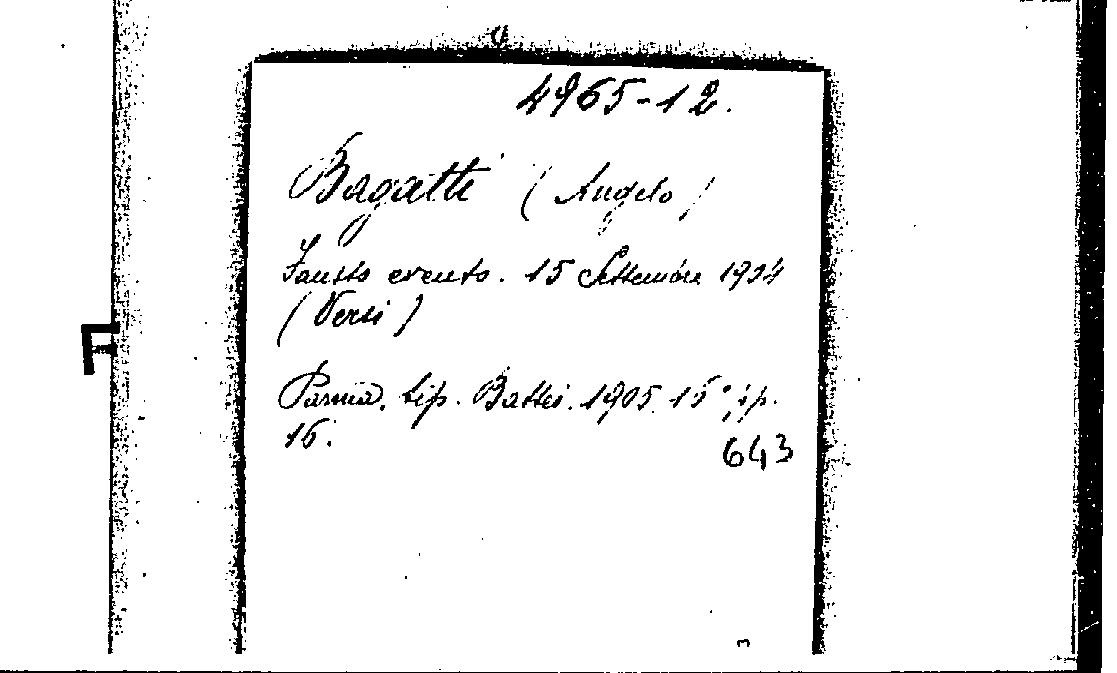 4965-12.
Bagatti (Angelo)
Fausto evento. 15 Settembre 1904
(Versi)
Parma, tip. Battei. 1905. 16°, p.
16.
643